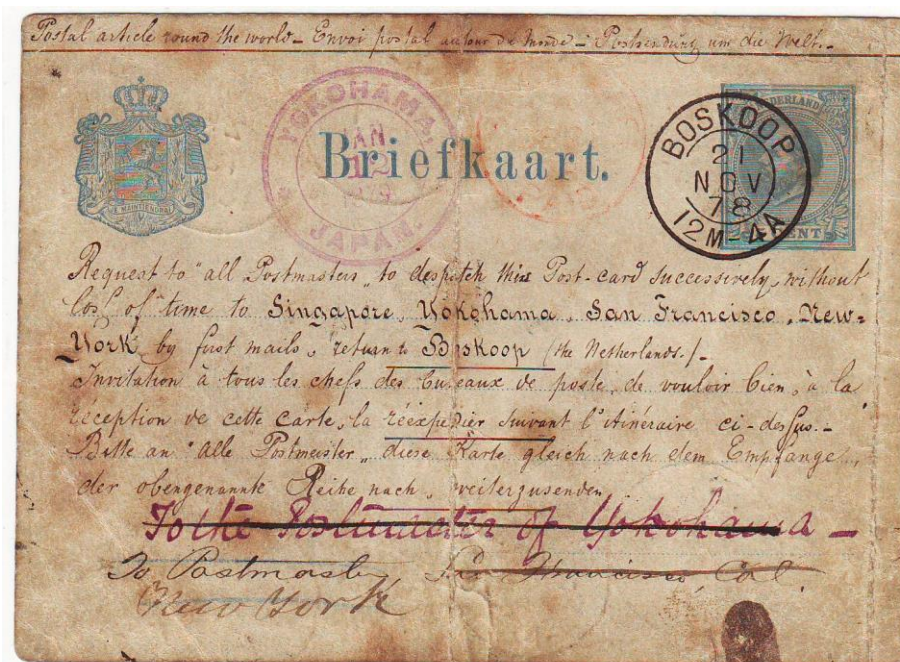 Postal article round the world - Envoi postal autour du Monde - Postsendung um die Welt.-
YOKOHAMA.
JAN.
12
1879
JAPAN.
Briefkaart.
BOSKOOP
21
NOV
78
12M-4A
NEDERLAND
5 CENT
JE MAINTIENDRAI
Request to "all Postmasters" to despatch this Post-card successively, without
loss of time to Singapore, Yokohama, San Francisco, New=
York by first mails, return to Boskoop (the Netherlands.)-
Invitation à tous les chefs des bureaux de poste, de vouloir bien, à la
réception de cette carte, la réexpédier suivant l'itinéraire ci-dessus.-
Bitte an "alle Postmeister" diese Karte gleich nach dem Empfange,
der obengenannte Reihe nach, weiterzusenden
To the Postmaster of Yokohama -
To Postmaster San Francisco Cal.
New York